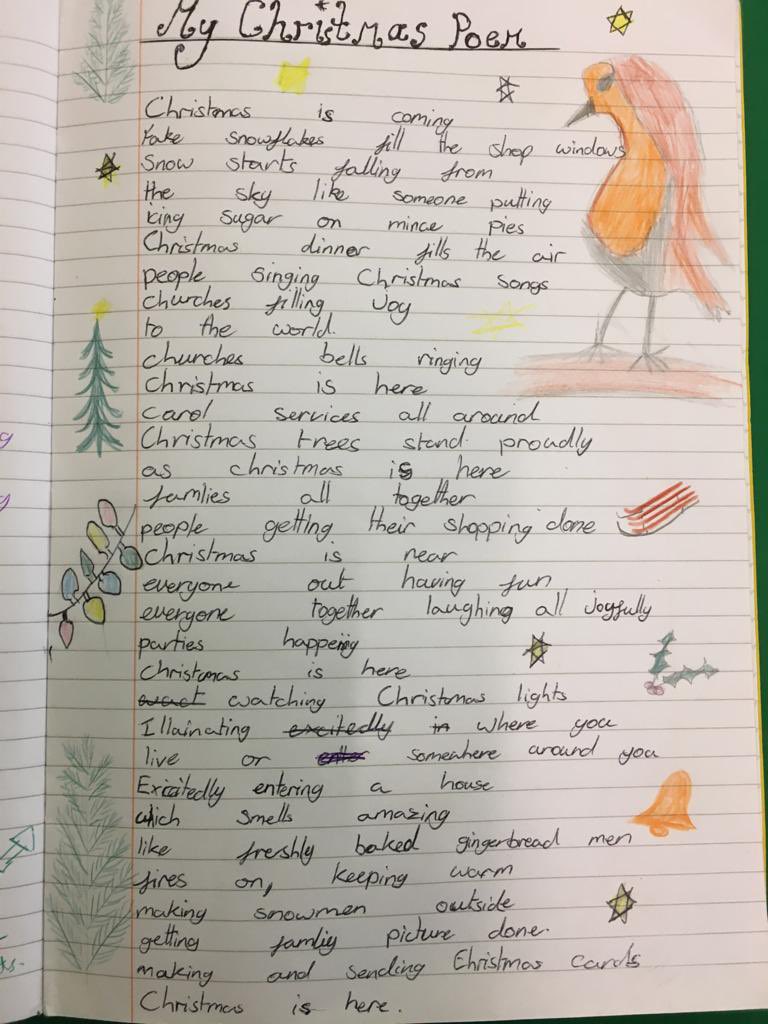 My Christmas Poem
Christmas is coming
Fake snowflakes fill the shop windows
Snow starts falling from
the sky like someone putting
icing sugar on mince pies
Christmas dinner fills the air
people singing Christmas songs
churches filling Joy
to the world.
churches bells ringing
Christmas is here
Carol services all around
Christmas trees stand proudly
as christmas is here
famlies all together
people getting their shopping done
Christmas is near
everyone out having fun
everyone together laughing all joyfully
parties happening
Christmas is here
watching Christmas lights
Illaínating excitedly in where you
live or somewhere around you
Excitedly entering a house
which smells amazing
like freshly baked gingerbread men
fires on, keeping warm
making snowmen outside
getting famliy picture done.
making and sending Christmas cards
Christmas is here.